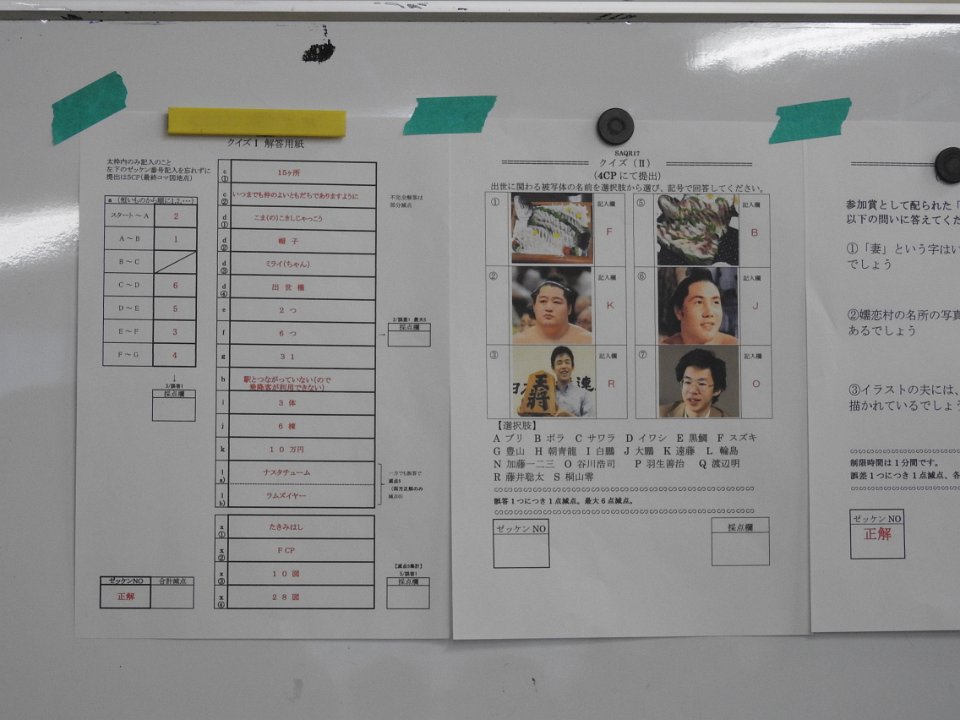 クイズⅠ 解答用紙
太枠内のみ記入のこと
左下のゼッケン番号記入を忘れずに
提出は5CP(最終コマ図地点)
スタート～A 2
A～B 1
B～C
C～D 6
D～E 5
E～F 3
F～G 4
↓
採点欄
c① 15ヶ所
c② いつまでも仲のよいともだちでありますように
d① こま(の)こきしじゃっこう
d② 帽子
d③ ミライ(ちゃん)
d④ 出世橋
e 2つ
f 6つ
g 31
h 駅とつながっていない(ので
乗降客が利用できない)
i 3体
j 6棟
k 10万円
ナスタチューム
ラムズイヤー
x① たきみはし
x② FCP
x③ 10図
x④ 28図
不完全解答は
部分減点
採点欄
採点欄
ゼッケンNO 合計減点
正解
SAQR17
クイズ（Ⅱ）
(4CPにて提出)
出世に関わる被写体の名前を選択肢から選び、記号で回答してください。
① 記入欄 F
② 記入欄 K
③ 記入欄 R
⑤ 記入欄 B
⑥ 記入欄 J
⑦ 記入欄 O
王将
【選択肢】
A ブリ B ボラ C サワラ D イワシ E 黒鯛 F スズキ
G 豊山 H 朝青龍 I 白鵬 J 大鵬 K 遠藤 L 輪島
N 加藤一二三 O 谷川浩司 P 羽生善治 Q 渡辺明
R 藤井聡太 S 桐山零
誤答1つにつき1点減点。最大6点減点。
ゼッケンNO
採点欄
参加賞として配られた「
以下の問いに答えてくだ
①「妻」という字はい
でしょう
②嬬恋村の名所の写真
あるでしょう
③イラストの夫には、
描かれているでしょう
制限時間は1分間です。
誤差1つにつき1点減点、各
ゼッケンNO
正解